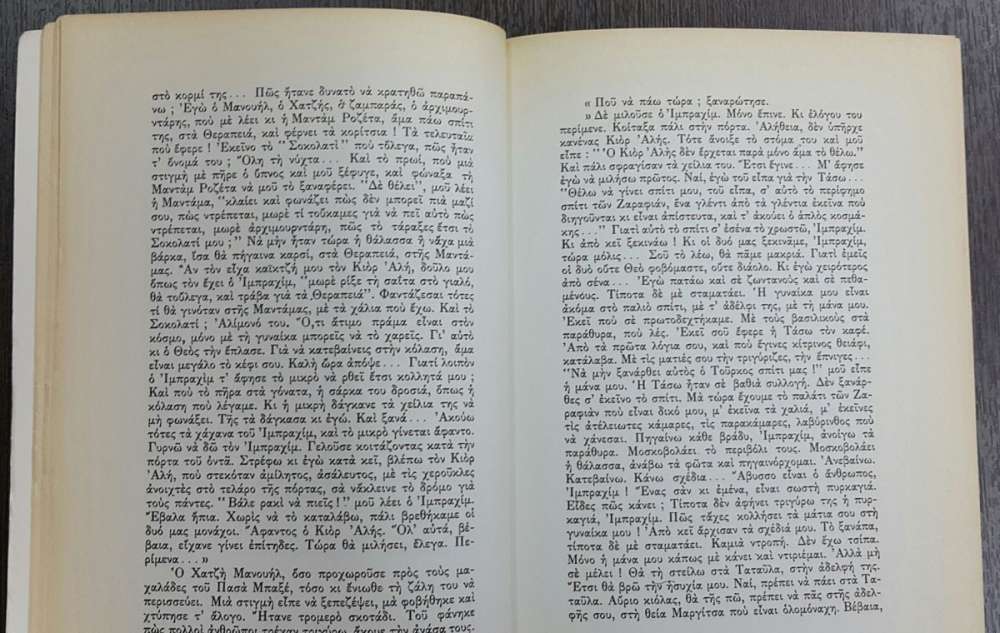 στὸ κορμί της... Πῶς ἤτανε δυνατὸ νὰ κρατηθῶ παραπά-
νω ; Ἐγὼ ὁ Μανουήλ, ὁ Χατζής, ὁ ζαμπαράς, ὁ ἀρχιμουρ-
ντάρης, ποὺ μὲ λέει κι ἡ Μαντὰμ Ροζέτα, ἅμα πάω σπίτι
της, στὰ Θεραπειά, καὶ φέρνει τὰ κορίτσια ! Τὰ τελευταῖα
ποὺ ἔφερε ! Ἐκεῖνο τὸ "Σοκολατὶ" ποὺ τὄλεγα, πῶς ἦταν
τ' ὄνομά του ; Ὅλη τὴ νύχτα... Καὶ τὸ πρωί, ποὺ μιὰ
στιγμὴ μὲ πῆρε ὁ ὕπνος καὶ μοῦ ξέφυγε, καὶ φώναξα τὴ
Μαντὰμ Ροζέτα νὰ μοῦ τὸ ξαναφέρει. "Δὲ θέλει", μοῦ λέει
ἡ Μαντάμα, "κλαίει καὶ φωνάζει πὼς δὲν μπορεῖ πιὰ μαζί
σου, πὼς ντρέπεται, μωρὲ τί τοὔκαμες γιὰ νὰ πεῖ αὐτὸ πὼς
ντρέπεται, μωρὲ ἀρχιμουρντάρη, πῶς τὸ τάραξες ἔτσι τὸ
Σοκολατί μου ;" Νὰ μὴν ἦταν τώρα ἡ θάλασσα ἢ νἄχα μιὰ
βάρκα, ἴσα θὰ πήγαινα καρσί, στὰ Θεραπειά, στῆς Μαντά-
μας. Ἂν τὸν εἶχα καϊκτζή μου τὸν Κιὸρ Ἀλή, δοῦλο μου
ὅπως τὸν ἔχει ὁ Ἰμπραχίμ, "μωρὲ ρίξε τὴ σαΐτα στὸ γιαλό,
θὰ τοὔλεγα, καὶ τράβα γιὰ τὰ Θεραπειά". Φαντάζεσαι τότες
τί θὰ γινόταν στῆς Μαντάμας, μὲ τὰ χάλια ποὺ ἔχω. Καὶ τὸ
Σοκολατί ; Ἀλίμονό του. Ὅ,τι ἄτιμο πράμα εἶναι στὸν
κόσμο, μόνο μὲ τὴ γυναίκα μπορεῖς νὰ τὸ χαρεῖς. Γι' αὐτὸ
κι ὁ Θεὸς τὴν ἔπλασε. Γιὰ νὰ κατεβαίνεις στὴν κόλαση, ἅμα
εἶναι μεγάλο τὸ κέφι σου. Καλὴ ὥρα ἀπόψε... Γιατί λοιπὸν
ὁ Ἰμπραχὶμ τ' ἄφησε τὸ μικρὸ νὰ ρθεῖ ἔτσι κολλητά μου ;
Καὶ ποὺ τὸ πῆρα στὰ γόνατα, ἡ σάρκα του δροσιά, ὅπως ἡ
κόλαση ποὺ λέγαμε. Κι ἡ μικρὴ δάγκανε τὰ χείλια της νὰ
μὴ φωνάξει. Τῆς τὰ δάγκασα κι ἐγώ. Καὶ ξανά... Ἀκούω
τότες τὰ χάχανα τοῦ Ἰμπραχίμ, καὶ τὸ μικρὸ γίνεται ἄφαντο.
Γυρνῶ νὰ δῶ τὸν Ἰμπραχίμ. Γελοῦσε κοιτάζοντας κατὰ τὴν
πόρτα τοῦ ὀντᾶ. Στρέφω κι ἐγὼ κατὰ κεῖ, βλέπω τὸν Κιὸρ
Ἀλή, ποὺ στεκόταν ἀμίλητος, ἀσάλευτος, μὲ τὶς χεροῦκλες
ἀνοιχτὲς στὸ τελάρο τῆς πόρτας, σὰ νἄκλεινε τὸ δρόμο γιὰ
τοὺς πάντες. "Βάλε ρακὶ νὰ πιεῖς !" μοῦ λέει ὁ Ἰμπραχίμ.
Ἔβαλα ἤπια. Χωρὶς νὰ τὸ καταλάβω, πάλι βρεθήκαμε οἱ
δυό μας μονάχοι. Ἄφαντος ὁ Κιὸρ Ἀλής. Ὅλ' αὐτά, βέ-
βαια, εἴχανε γίνει ἐπίτηδες. Τώρα θὰ μιλήσει, ἔλεγα. Πε-
ρίμενα...»
Ὁ Χατζὴ Μανουήλ, ὅσο προχωροῦσε πρὸς τοὺς μα-
χαλάδες τοῦ Πασὰ Μπαξέ, τόσο κι ἔνιωθε τὴ ζάλη του νὰ
περισσεύει. Μιὰ στιγμὴ εἶπε νὰ ξεπεζέψει, μὰ φοβήθηκε καὶ
χτύπησε τ' ἄλογο. Ἤτανε τρομερὸ σκοτάδι. Τοῦ φάνηκε
πὼς πολλοὶ ἄνθρωποι τρέχαν τριγύρω, ἄκουε τὴν ἀνάσα τους.
« Ποῦ νὰ πάω τώρα ; ξαναρώτησε.
» Δὲ μιλοῦσε ὁ Ἰμπραχίμ. Μόνο ἔπινε. Κι ἐλόγου του
περίμενε. Κοίταξα πάλι στὴν πόρτα. Ἀλήθεια, δὲν ὑπῆρχε
κανένας Κιὸρ Ἀλής. Τότε ἄνοιξε τὸ στόμα του καὶ μοῦ
εἶπε : "Ὁ Κιὸρ Ἀλὴς δὲν ἔρχεται παρὰ μόνο ἅμα τὸ θέλω".
Καὶ πάλι σφραγίσαν τὰ χείλια του. Ἔτσι ἔγινε... Μ' ἄφησε
ἐγὼ νὰ μιλήσω πρῶτος. Ναί, ἐγὼ τοῦ εἶπα γιὰ τὴν Τάσω...
"Θέλω νὰ γίνει σπίτι μου, τοῦ εἶπα, σ' αὐτὸ τὸ περίφημο
σπίτι τῶν Ζαραφιάν, ἕνα γλέντι ἀπὸ τὰ γλέντια ἐκεῖνα ποὺ
διηγοῦνται κι εἶναι ἀπίστευτα, καὶ τ' ἀκούει ὁ ἁπλὸς κοσμά-
κης...". Γιατὶ αὐτὸ τὸ σπίτι σ' ἐσένα τὸ χρωστῶ, Ἰμπραχίμ.
Κι ἀπὸ κεῖ ξεκινάω ! Κι οἱ δυό μας ξεκινᾶμε, Ἰμπραχίμ,
τώρα μόλις... Σοῦ τὸ λέω, θὰ πᾶμε μακριά. Γιατὶ ἐμεῖς
οἱ δυὸ οὔτε Θεὸ φοβόμαστε, οὔτε διάολο. Κι ἐγὼ χειρότερος
ἀπὸ σένα... Ἐγὼ πατάω καὶ σὲ ζωντανοὺς καὶ σὲ πεθα-
μένους. Τίποτα δὲ μὲ σταματάει. Ἡ γυναίκα μου εἶναι
ἀκόμα στὸ παλιὸ σπίτι, μὲ τ' ἀδέλφι της, μὲ τὴ μάνα μου.
Ἐκεῖ ποὺ σὲ πρωτοδεχτήκαμε. Μὲ τοὺς βασιλικοὺς στὰ
παράθυρα, ποὺ λές. Ἐκεῖ σοῦ ἔφερε ἡ Τάσω τὸν καφέ.
Ἀπὸ τὰ πρῶτα λόγια σου, καὶ ποὺ ἔγινες κίτρινος θειάφι,
κατάλαβα. Μὲ τὶς ματιές σου τὴν τριγύριζες, τὴν ἔπνιγες...
"Νὰ μὴν ξανάρθει αὐτὸς ὁ Τοῦρκος σπίτι μας !" μοῦ εἶπε
ἡ μάνα μου. Ἡ Τάσω ἦταν σὲ βαθιὰ συλλογή. Δὲν ξανάρ-
θες σ' ἐκεῖνο τὸ σπίτι. Μὰ τώρα ἔχουμε τὸ παλάτι τῶν Ζα-
ραφιὰν ποὺ εἶναι δικό μου, μ' ἐκεῖνα τὰ χαλιά, μ' ἐκεῖνες
τὶς ἀτέλειωτες κάμαρες, τὶς παρακάμαρες, λαβύρινθος ποὺ
νὰ χάνεσαι. Πηγαίνω κάθε βράδυ, Ἰμπραχίμ, ἀνοίγω τὰ
παράθυρα. Μοσκοβολάει τὸ περιβόλι τους. Μοσκοβολάει
ἡ θάλασσα, ἀνάβω τὰ φῶτα καὶ πηγαινόρχομαι. Ἀνεβαίνω.
Κατεβαίνω. Κάνω σχέδια... Ἄβυσσο εἶναι ὁ ἄνθρωπος,
Ἰμπραχίμ ! Ἕνας σὰν κι ἐμένα, εἶναι σωστὴ πυρκαγιά.
Εἶδες πῶς κάνει ; Τίποτα δὲν ἀφήνει τριγύρω της ἡ πυρ-
καγιά, Ἰμπραχίμ. Πῶς τἄχες κολλήσει τὰ μάτια σου στὴ
γυναίκα μου ! Ἀπὸ κεῖ ἄρχισαν τὰ σχέδιά μου. Τὸ ξανάπα,
τίποτα δὲ μὲ σταματάει. Καμιὰ ντροπή. Δὲν ἔχω τσίπα.
Μόνο ἡ μάνα μου κάπως μὲ κάνει καὶ ντιρέμαι. Ἀλλὰ μὴ
σὲ μέλει ! Θὰ τὴ στείλω στὰ Ταταῦλα, στὴν ἀδελφή της.
Ἔτσι θὰ βρῶ τὴν ἡσυχία μου. Ναί, πρέπει νὰ πάει στὰ Τα-
ταῦλα. Αὔριο κιόλας, θὰ τῆς πῶ, πρέπει νὰ πᾶς στῆς ἀδελ-
φῆς σου, στὴ θεία Μαργίτσα ποὺ εἶναι ὁλομόναχη. Βέβαια,